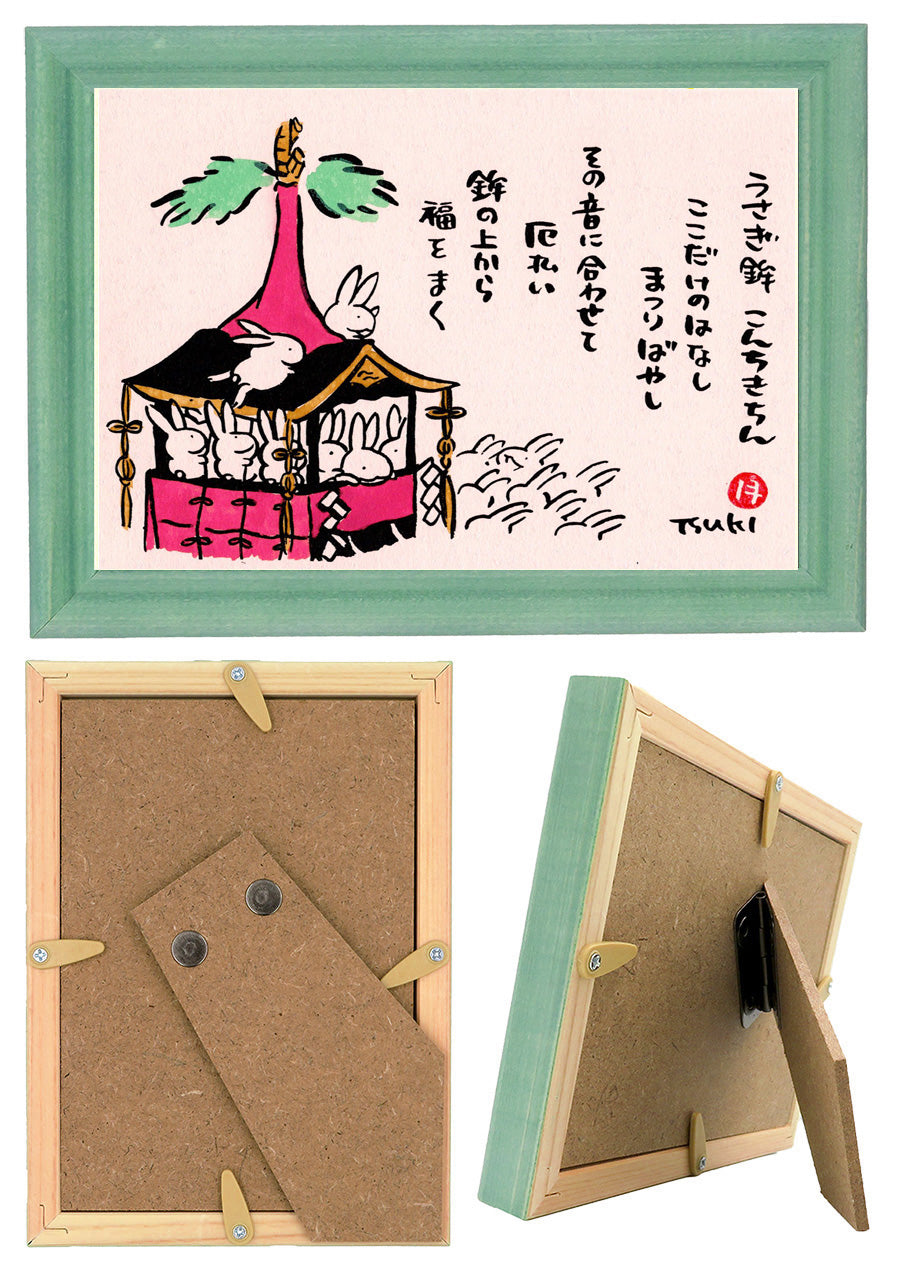 うさぎ鉾 こんちきちん
ここだけのはなし
まつりばやし
その音に合わせて
厄払い
鉾の上から
福をまく
月
TSUKI